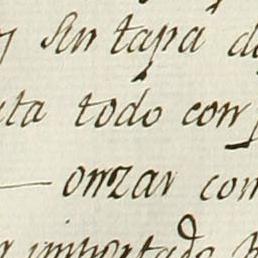 y sin tapa
todo con
onzar com
importado